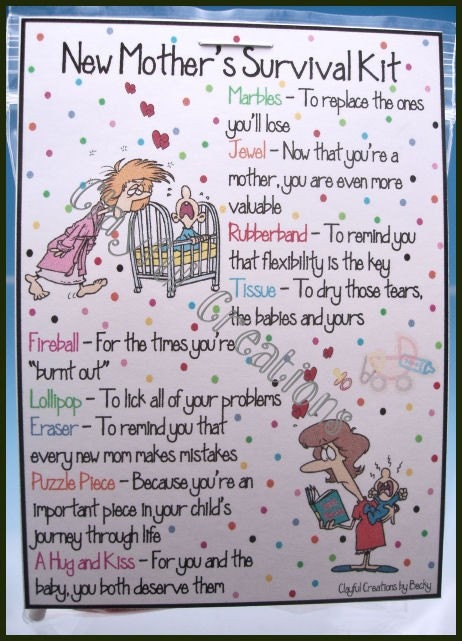 New Mother's Survival Kit
Marbles - To replace the ones
you'll lose
Jewel - Now that you're a
mother, you are even more
valuable
Rubberband - To remind you
that flexibility is the key
Tissue - To dry those tears,
the babies and yours
Fireball - For the times you're
"burnt out"
Lollipop - To lick all of your problems
Eraser - To remind you that
every new mom makes mistakes
Puzzle Piece - Because you're an
important piece in your child's
journey through life
A Hug and Kiss - For you and the
baby, you both deserve them
Clayful Creations by Becky
Clayful Creations